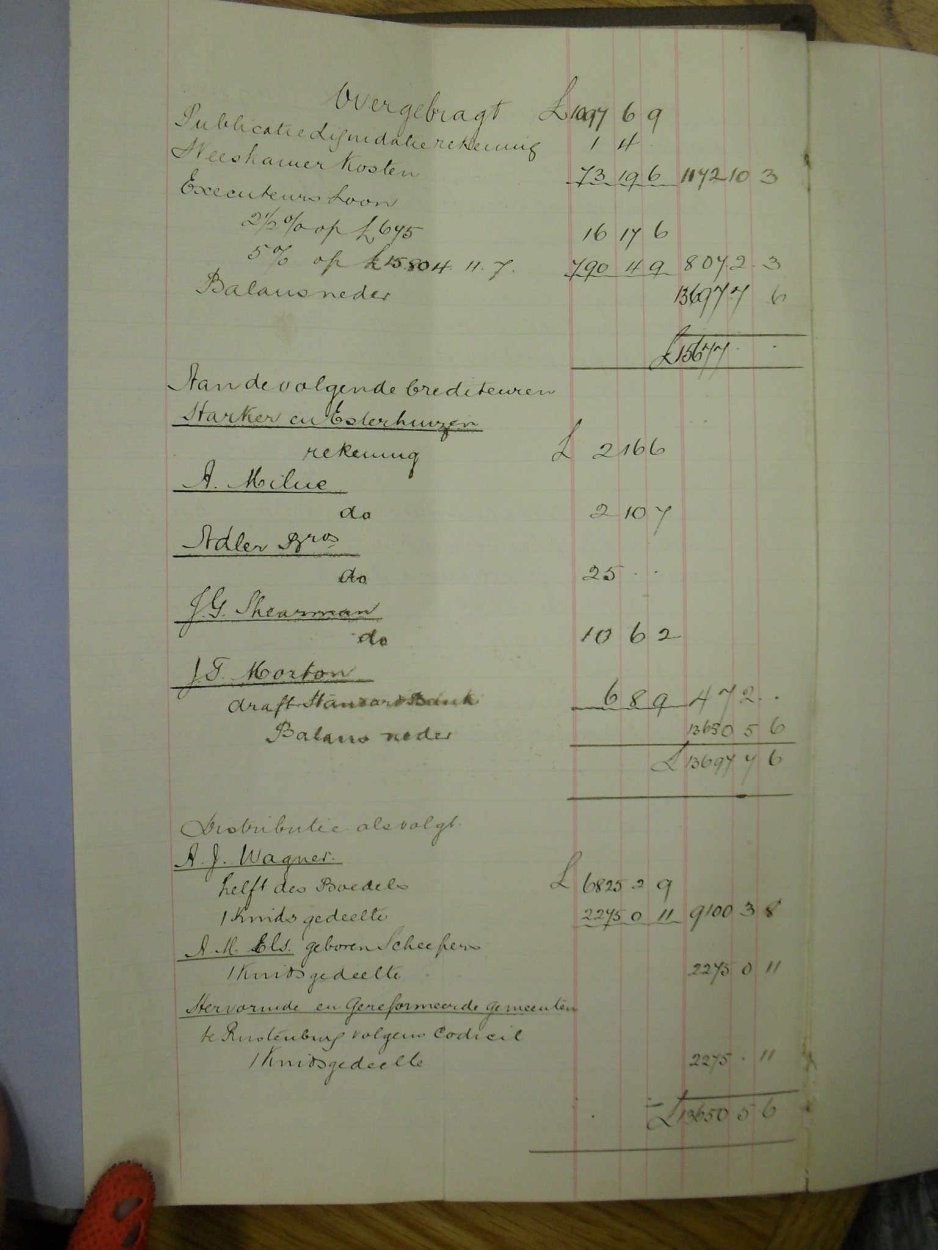 Overgebragt £1097 6 9
Publicatie Liquidatie rekening 1 4
Weeskamer Kosten 73 19 6 1172 10 3
Executeurs Loon
2½% op £675 16 17 6
5% op £15804. 11. 7. 790 4 9 807 2 . 3
Balans neder 13697 7 6
£15677 . .
Aan de volgende Crediteuren
Starker en Esterhuizen
rekening £ 2 16 6
A. Milne
do 2 10 7
Adler Bros
do 25 . .
J.G. Shearman
do 10 6 2
J.T. Morton
draft Standard Bank 6 8 9 47 2 . .
Balans neder 13650 5 6
£13697 7 6
Distributie als volgt.
A. J. Wagner.
helft des Boedels £ 6825 . 2 9
1 Kindsgedeelte 2275 0 11 9100 3 8
A. M. Els. geboren Scheepers
1 Kindsgedeelte 2275 0 11
Hervormde en Gereformeerde gemeenten
te Rustenburg volgens Codicil
1 Kindsgedeelte 2275 . 11
£13650 5 6